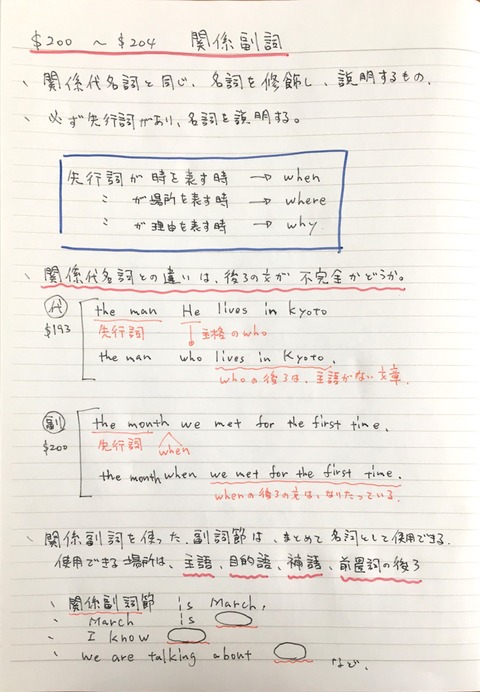 $200 〜 $204 関係副詞
、関係代名詞と同じ、名詞を修飾し、説明するもの.
、必ず先行詞があり、名詞を説明する。
先行詞が時を表す時 → when
〃 が場所を表す時 → where
〃 が理由を表す時 → why
、関係代名詞との違いは、後ろの文が不完全かどうか。
代 the man He lives in kyoto
$193 先行詞 主格のwho
the man who lives in Kyoto.
whoの後ろは、主語がない文章.
副 the month we met for the first time.
$200 先行詞 when
the month when we met for the first time.
whenの後ろの文は、なりたっている.
、関係副詞を使った、副詞節は、まとめて名詞として使用できる.
使用できる場所は、主語、目的語、補語、前置詞の後ろ
、関係副詞節 is March.
、March is
、I know
、we are talking about など.